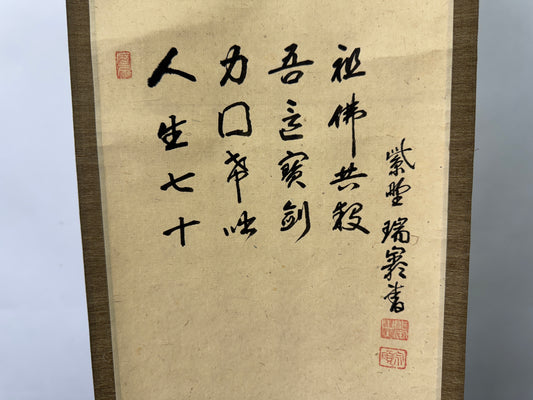 人生七十
力囲希咄
吾這寶劍
祖佛共殺
紫野 瑞巖書